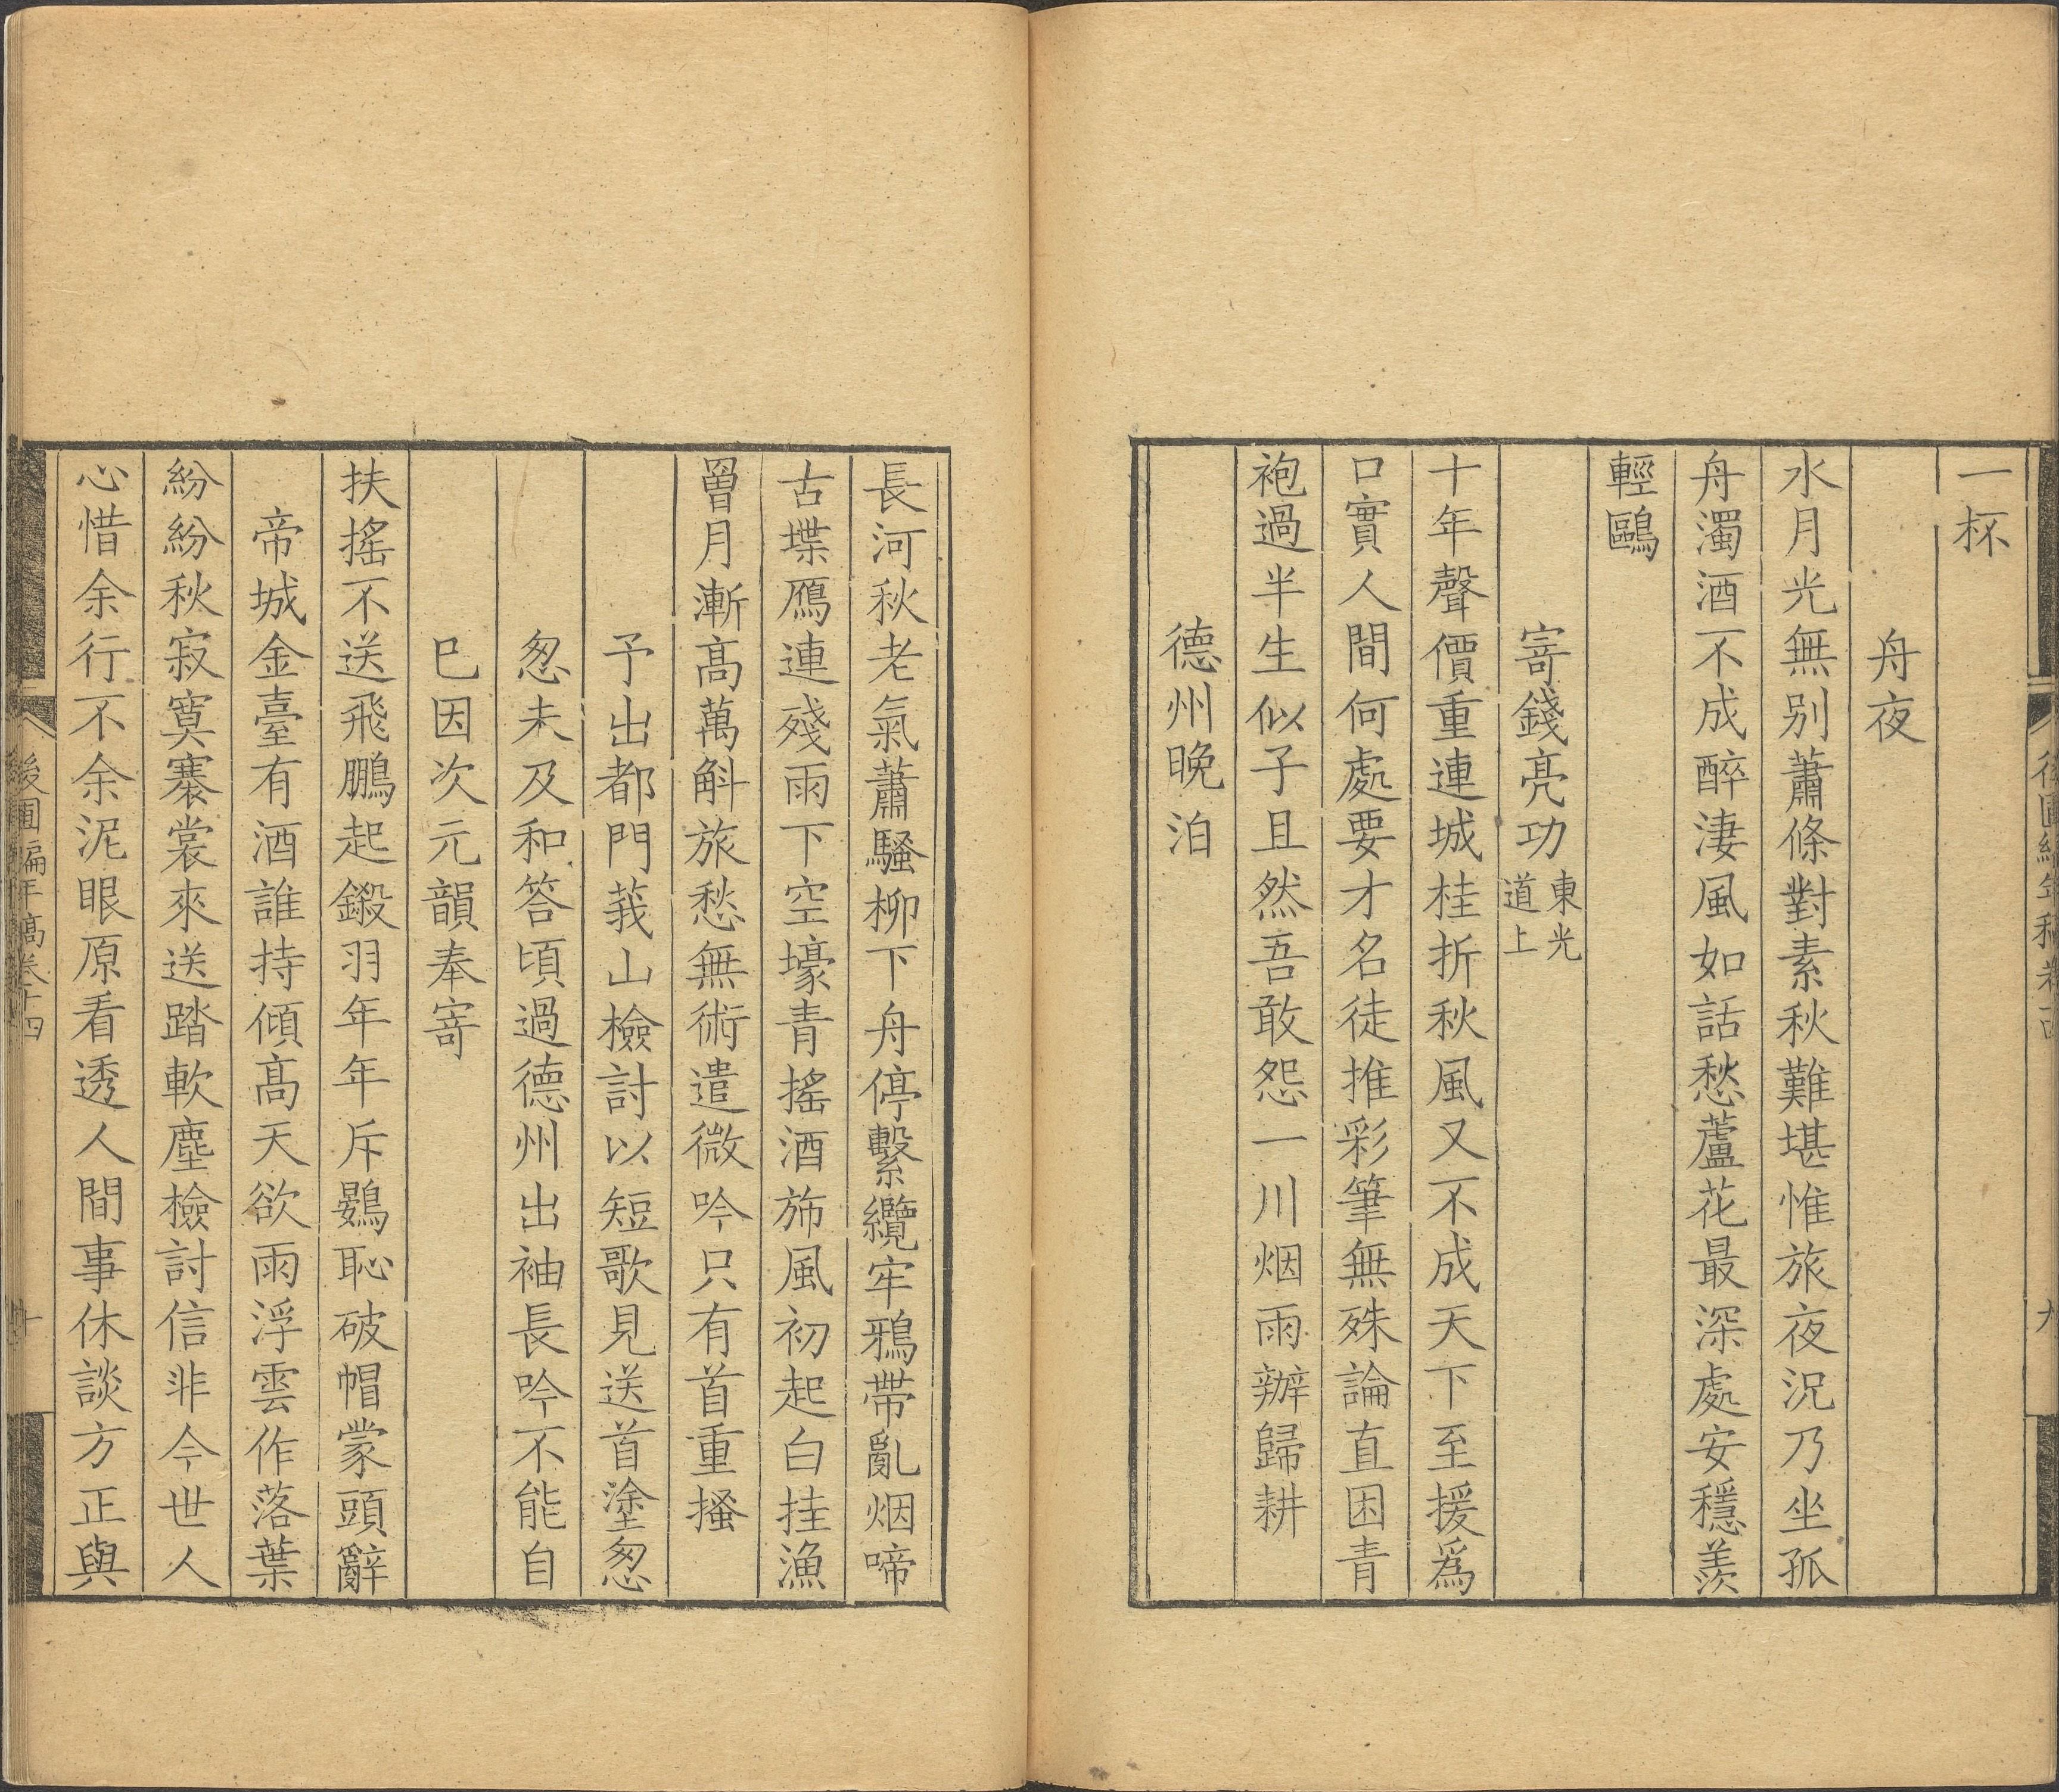 一杯
舟夜
水月光無别蕭條對素秋難堪惟旅夜況乃坐孤
舟濁酒不成醉淒風如話愁蘆花最深處安穩羨
輕鷗
寄錢亮功東光
道上
十年聲價重連城桂折秋風又不成天下至援爲
口實人間何處要才名徒推彩筆無殊論直困青
袍過半生似子且然吾敢怨一川烟雨辦歸耕
德州晚泊
長河秋老氣蕭騷柳下舟停繫纜牢鴉帶亂烟啼
古堞鴈連殘雨下空壕青搖酒斾風初起白挂漁
罾月漸高萬斛旅愁無術遣微吟只有首重搔
予出都門莪山檢討以短歌見送首塗怱
怱未及和答頃過德州出袖長吟不能自
巳因次元韻奉寄
扶搖不送飛鵬起鎩羽年年斥鷃恥破帽蒙頭辭
帝城金臺有酒誰持傾高天欲雨浮雲作落葉
紛紛秋寂寞褰裳來送踏軟塵檢討信非今世人
心惜余行不余泥眼原看透人間事休談方正與
後圃編年稿卷十四
十